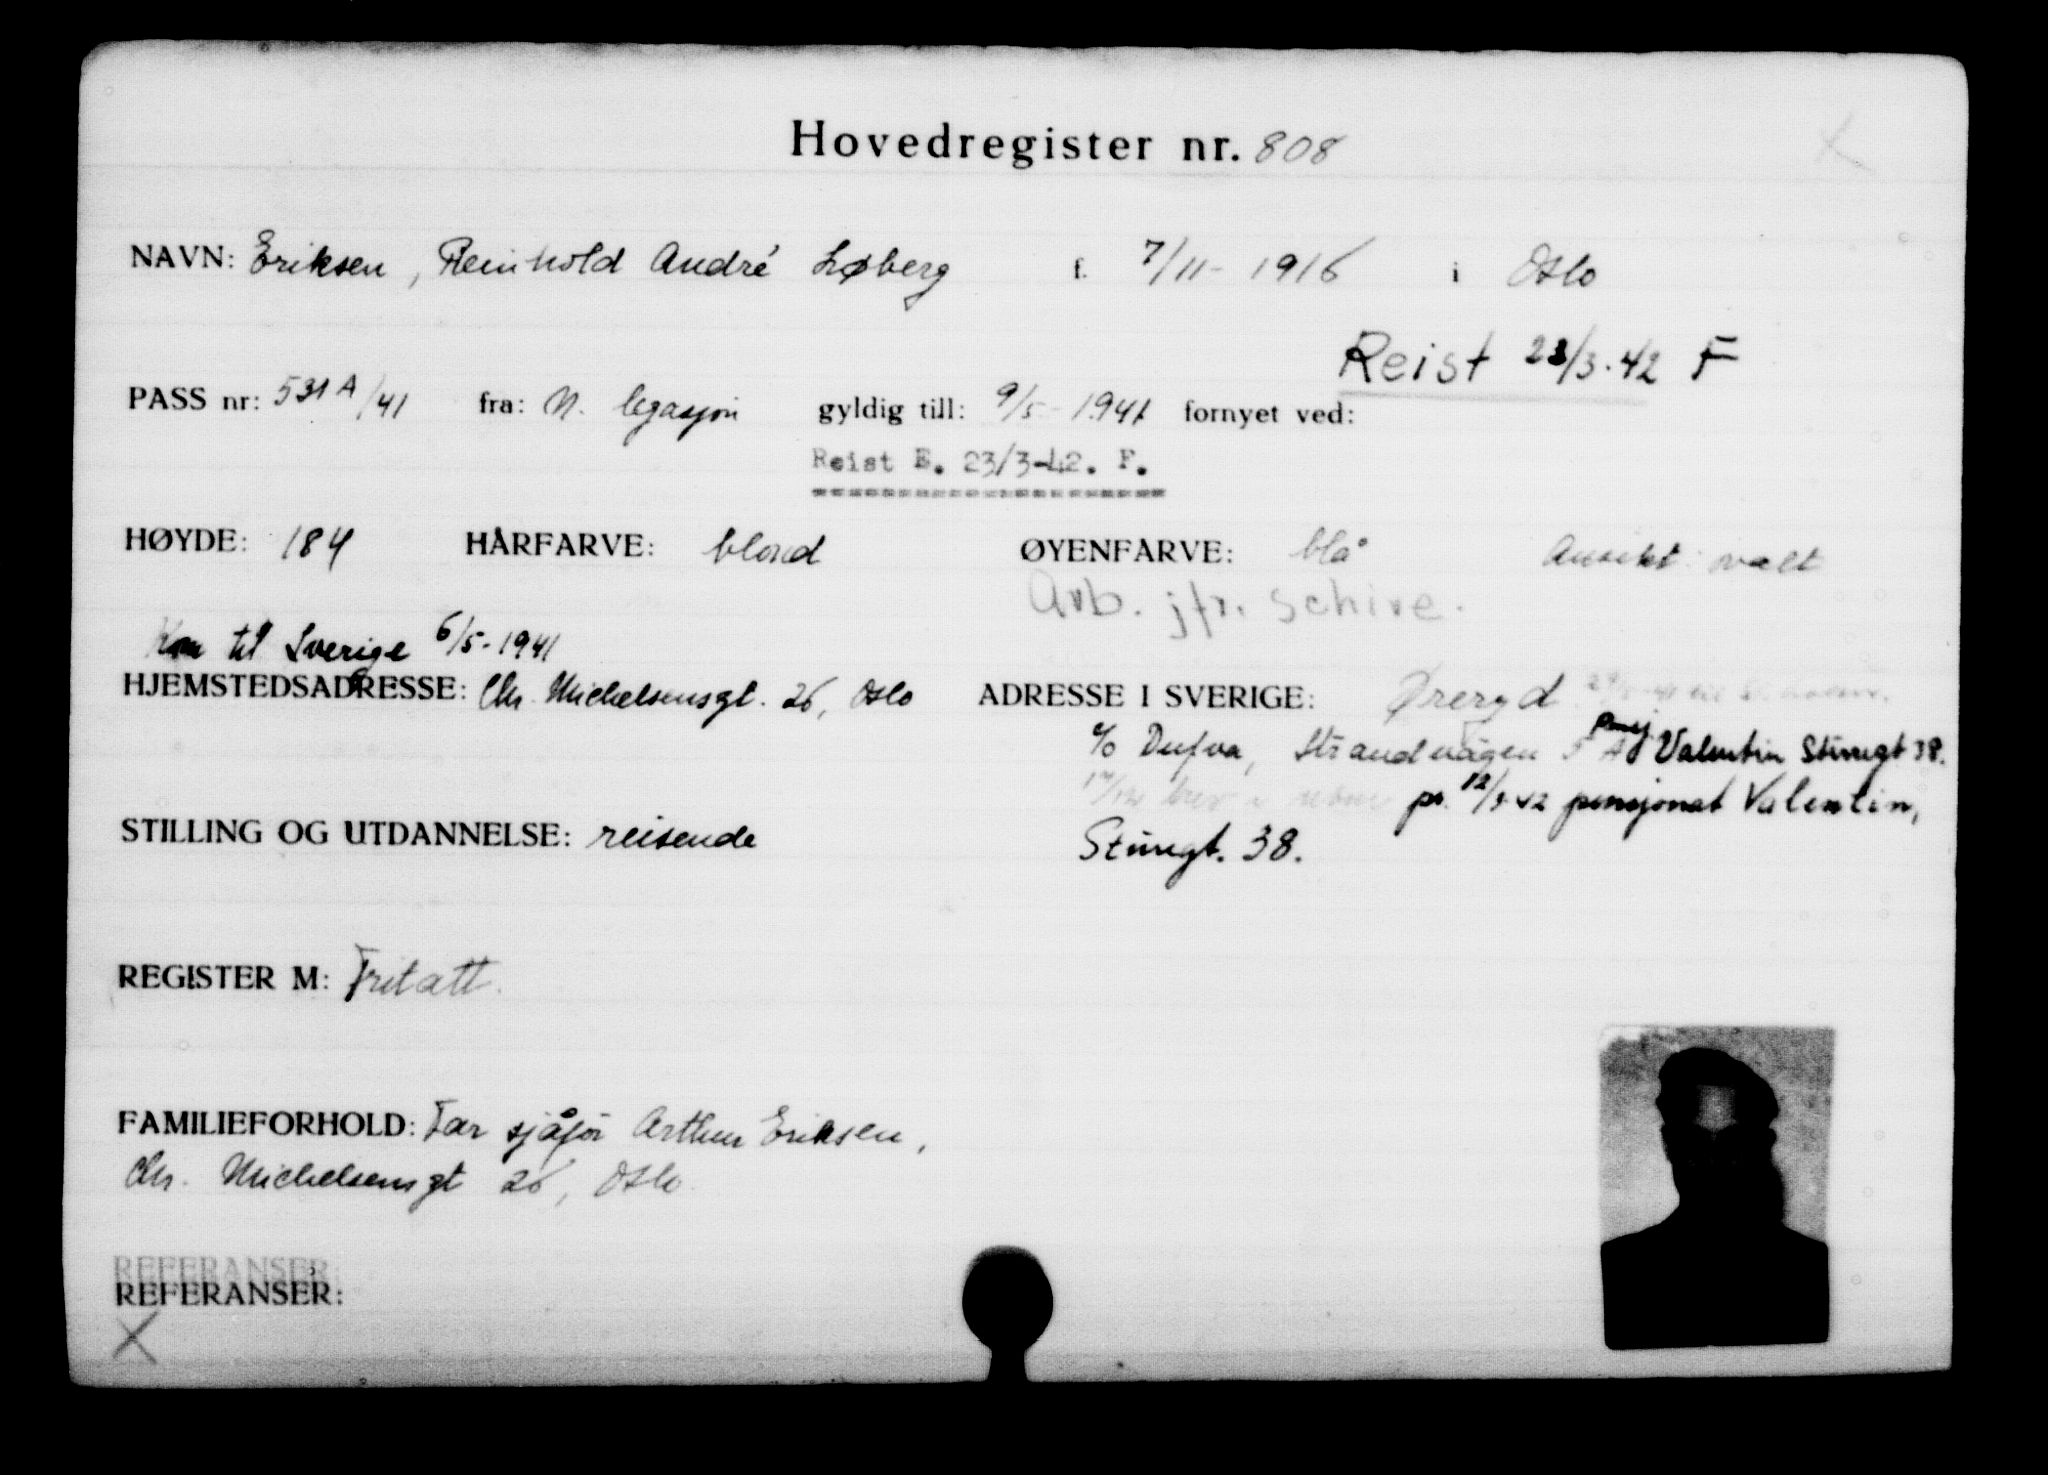 Hovedregister nr. 808
NAVN: Eriksen, Reinhold André Løberg f. 7/11-1916 i Oslo
Reist 23/3.42 F
PASS nr: 531 A/41 fra: N. legasjon gyldig till: 9/5-1941 fornyet ved:
Reist E. 23/3-42. F.
HØYDE: 184 HÅRFARVE: blond ØYENFARVE: blå Ansikt: ovalt
Arb. jfr. Schive.
Kom til Sverige 6/5-1941
HJEMSTEDSADRESSE: Chr. Michelsensgt. 26, Oslo ADRESSE I SVERIGE: Øreryd
c/o Dufva, Strandvägen 5 A pensj. Valentin Sturegt 38.
pr. 12/3 42 pensjonat Valentin,
STILLING OG UTDANNELSE: reisende Sturegt. 38.
REGISTER M: Fritatt.
FAMILIEFORHOLD: Far sjåfør Arthur Eriksen,
Chr. Michelsensgt 26, Oslo.
REFERANSER:
REFERANSER:
X